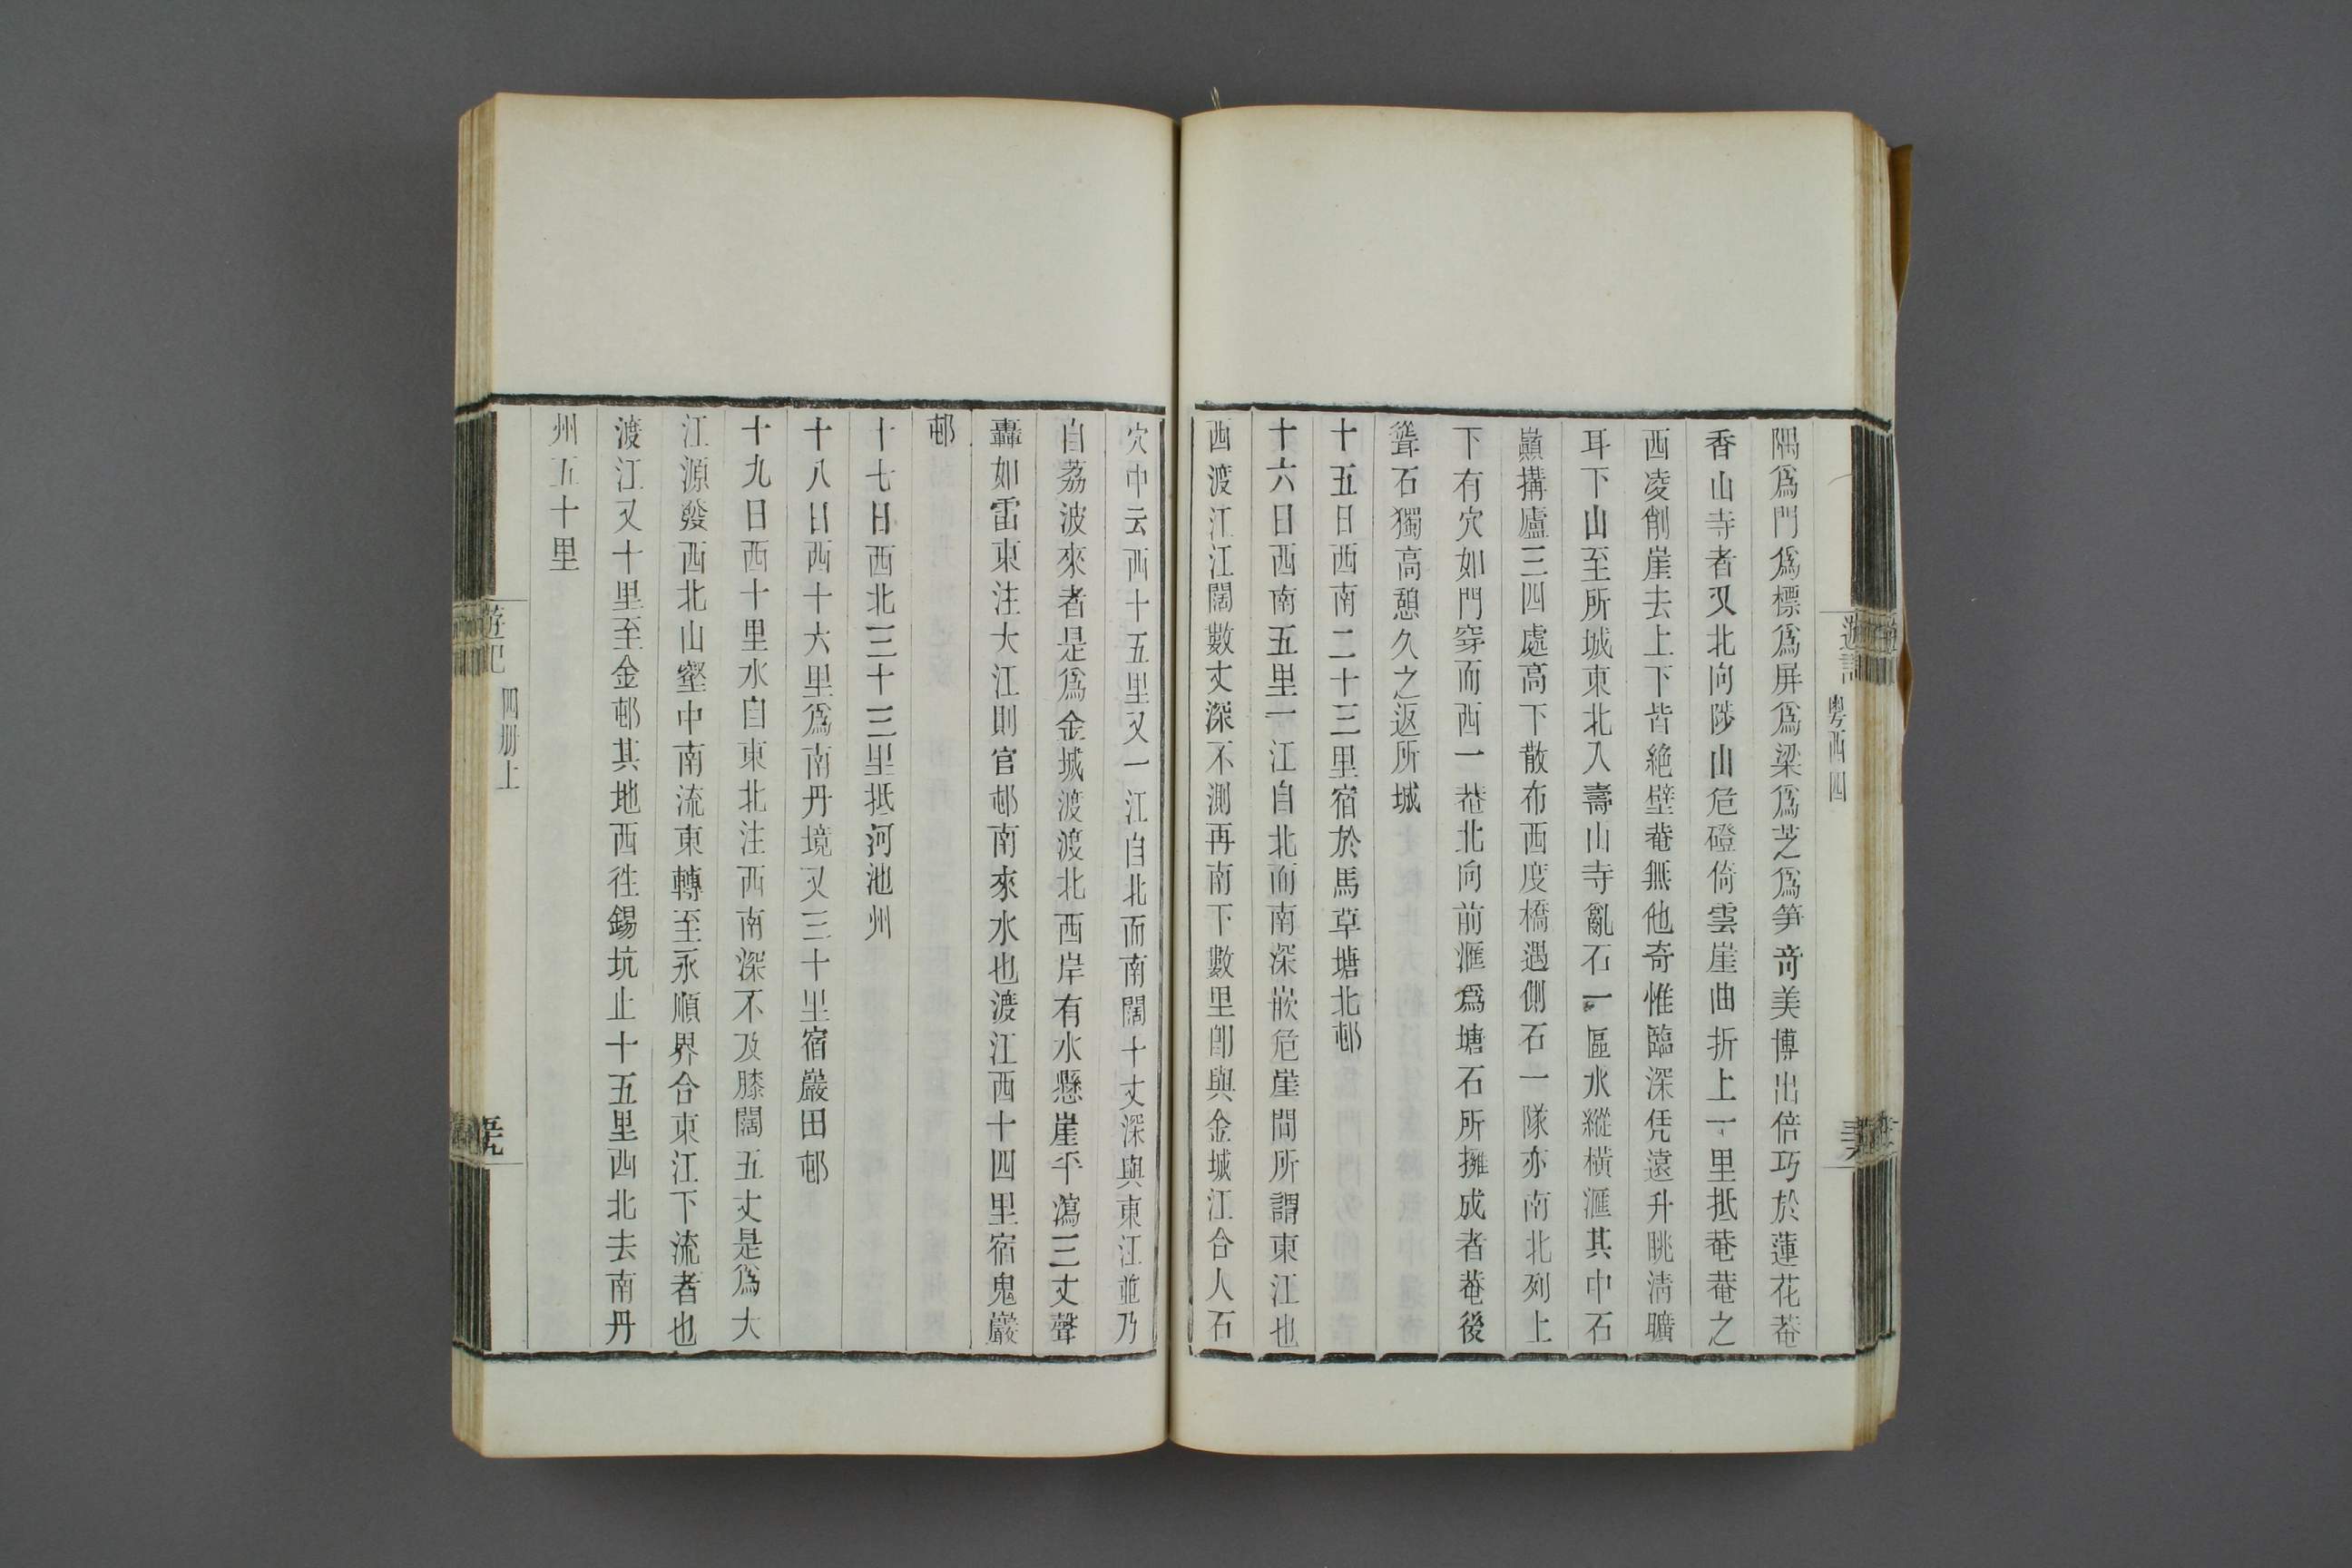 遊記
粤西四
隅爲門爲標爲屏爲梁爲芝爲筍竒美博出倍巧於蓮花菴
香山寺者又北向陟山危磴倚雲崖曲折上一里抵菴菴之
西凌削崖去上下皆絶壁菴無他奇惟臨深凭遠升眺清曠
耳下山至所城東北入壽山寺亂石一區水縱橫滙其中石
巔搆廬三四處高下散布西度橋遇側石一隊亦南北列上
下有穴如門穿而西一菴北向前滙爲塘石所擁成者菴後
聳石獨高憩久之返所城
十五日西南二十三里宿於馬草塘北邨
十六日西南五里一江自北而南深嵌危崖間所謂東江也
西渡江江闊數丈深不測再南下數里卽與金城江合人石
穴中云西十五里又一江自北而南闊十丈深與東江並乃
自荔波來者是爲金城渡渡北西岸有水懸崖平瀉三丈聲
轟如雷東注大江則官邨南來水也渡江西十四里宿鬼巖
邨
十七日西北三十三里抵河池州
十八日西十六里爲南丹境又三十里宿巖田邨
十九日西十里水自東北注西南深不及膝闊五丈是爲大
江源發西北山壑中南流東轉至永順界合東江下流者也
渡江又十里至金邨其地西徃錫坑止十五里西北去南丹
州五十里
遊記
四册上